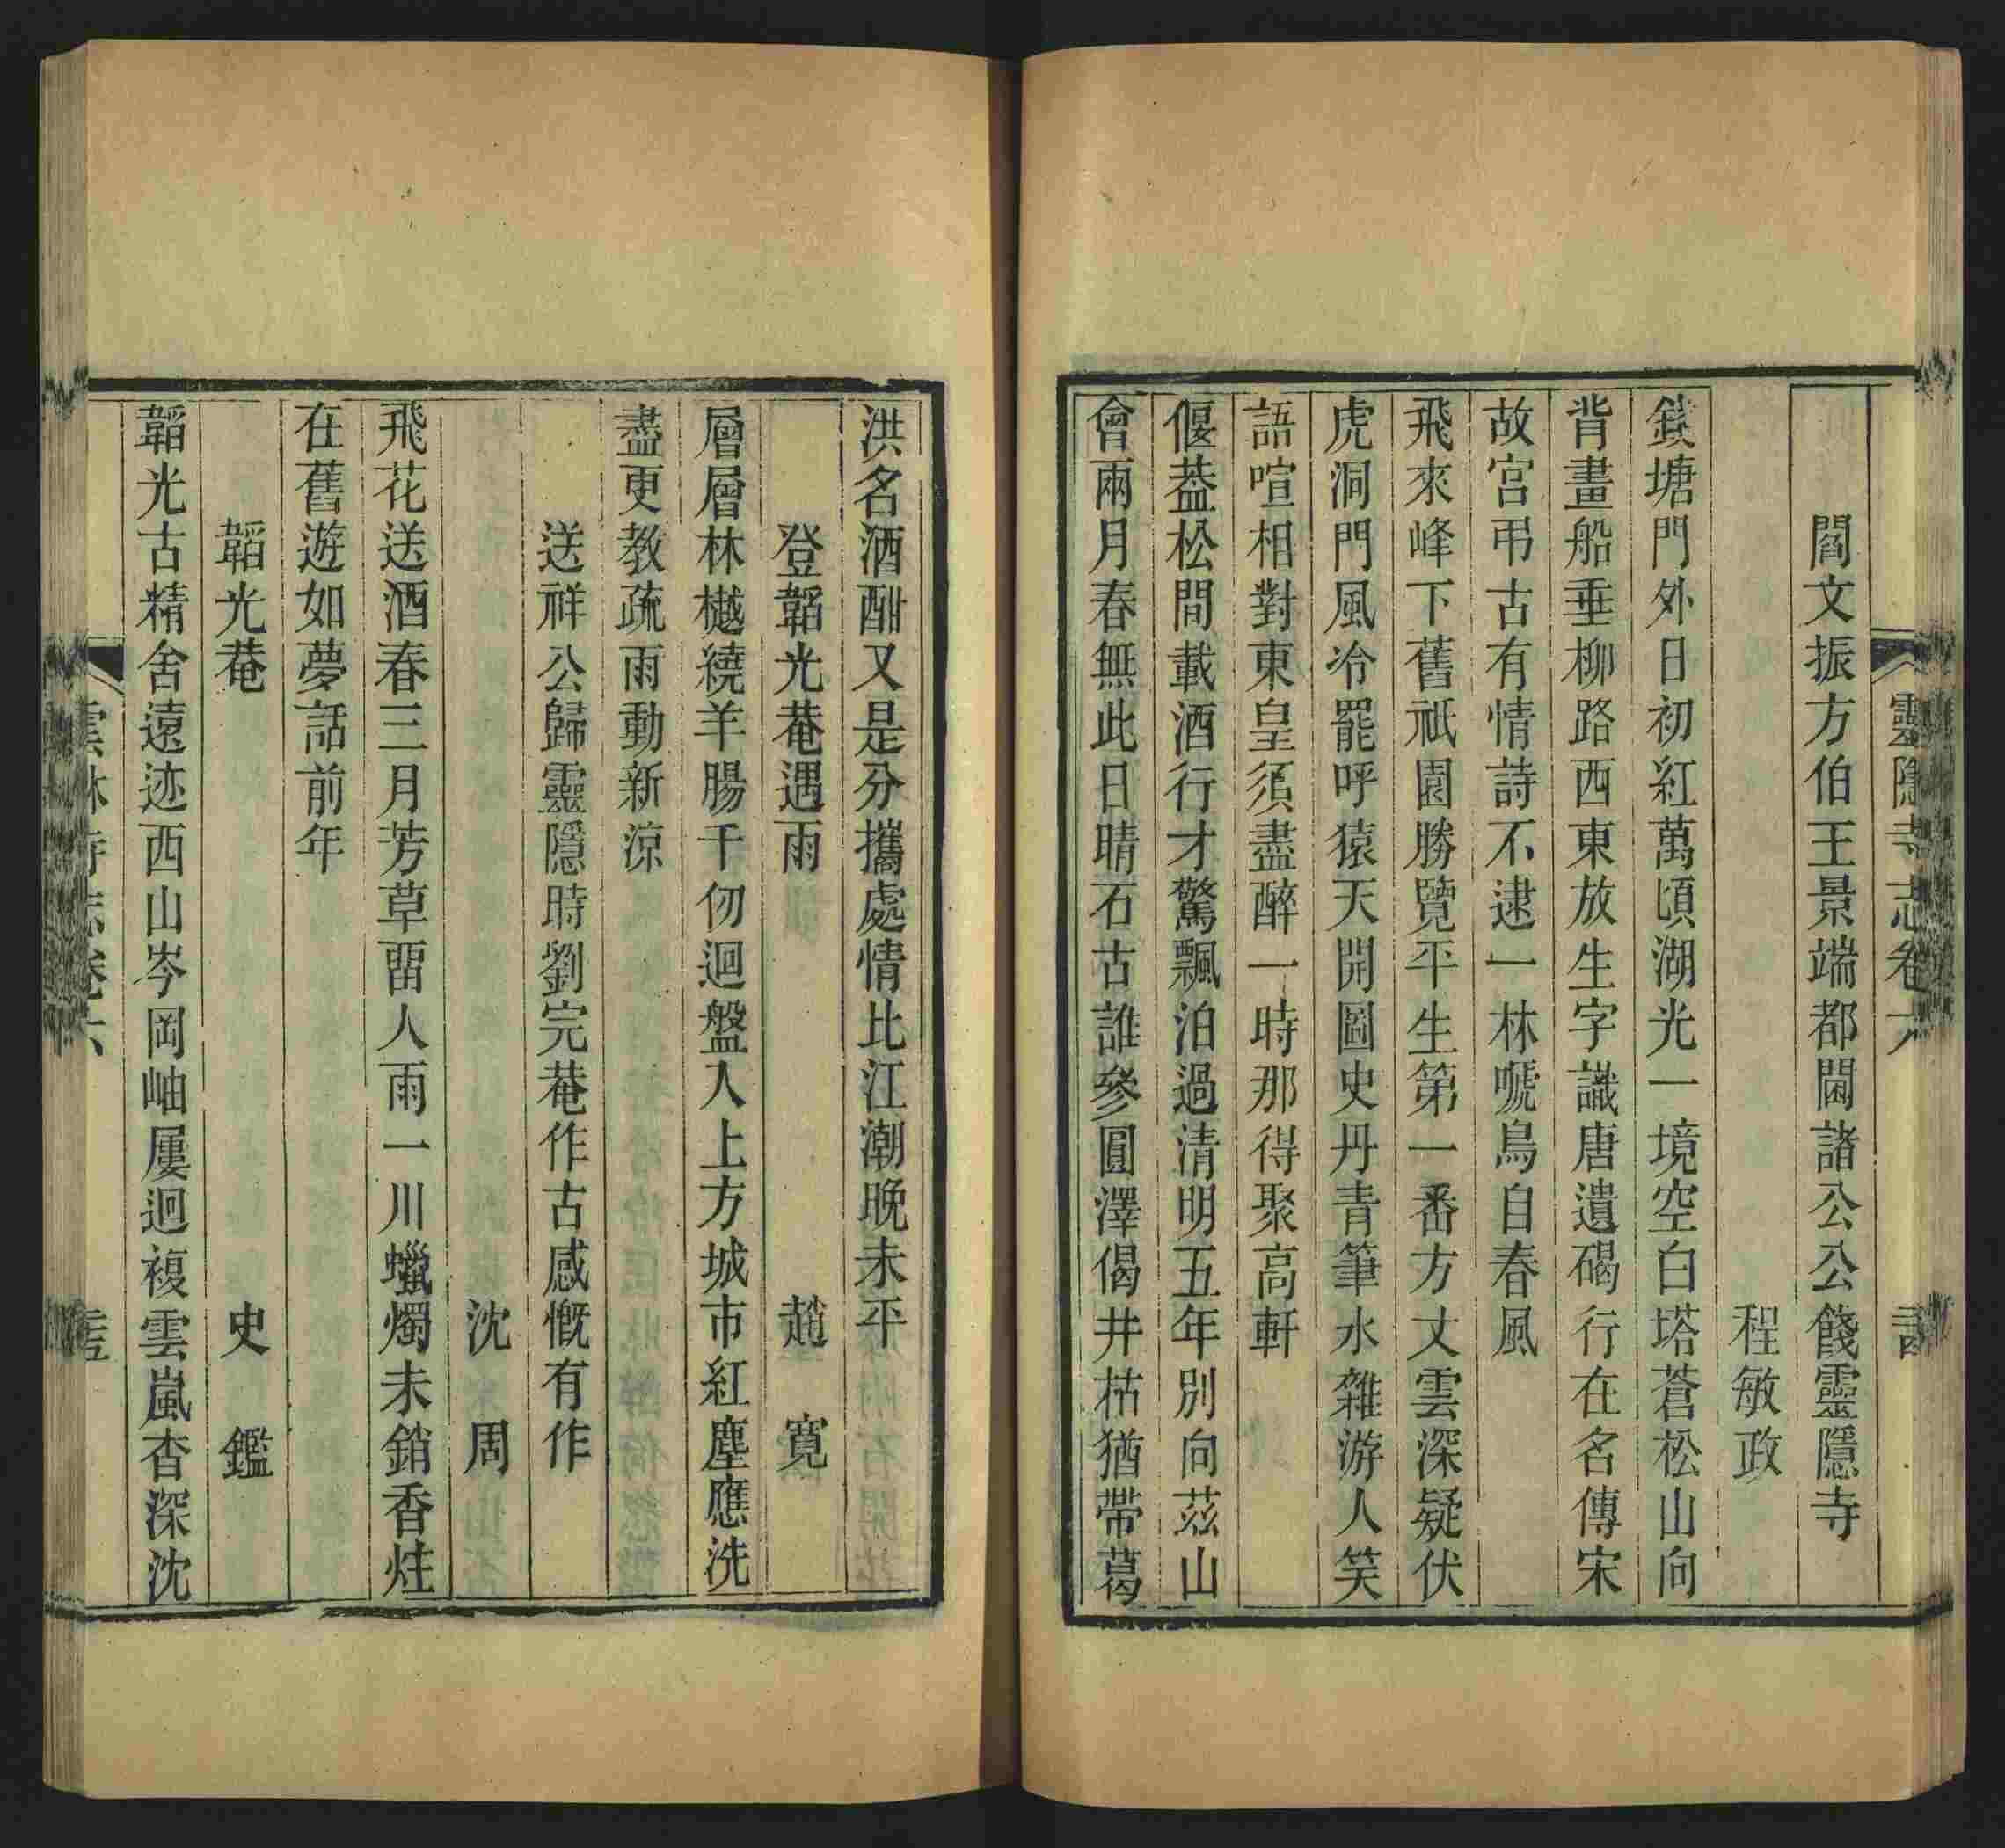 靈隱寺志卷六
閻文振方伯王景端都閫諸公公餞靈隱寺
程敏政
錢塘門外日初紅萬頃湖光一境空白塔蒼松山向
背畫船垂柳路西東放生字識唐遺碣行在名傳宋
故宮弔古有情詩不逮一林嗁鳥自春風
飛來峰下舊祇園勝覽平生第一番方丈雲深疑伏
虎洞門風冷罷呼猿天開圖史丹青筆水雜游人笑
語喧相對東皇須盡醉一時那得聚高軒
偃葢松間載酒行才驚飄泊過清明五年別向茲山
會兩月春無此日晴石古誰參圓澤偈井枯猶帶葛
洪名酒酣又是分攜處情比江潮晚未平
登韜光菴遇雨 趙寬
層層林樾繞羊腸千仞迴盤入上方城市紅塵應洗
盡更教疏雨動新涼
送祥公歸靈隱時劉完菴作古感慨有作
沈周
飛花送酒春三月芳草畱人雨一川蠟燭未銷香炷
在舊遊如夢話前年
韜光菴 史鑑
韜光古精舍遠迹西山岑岡岫屢迴複雲嵐杳深沈